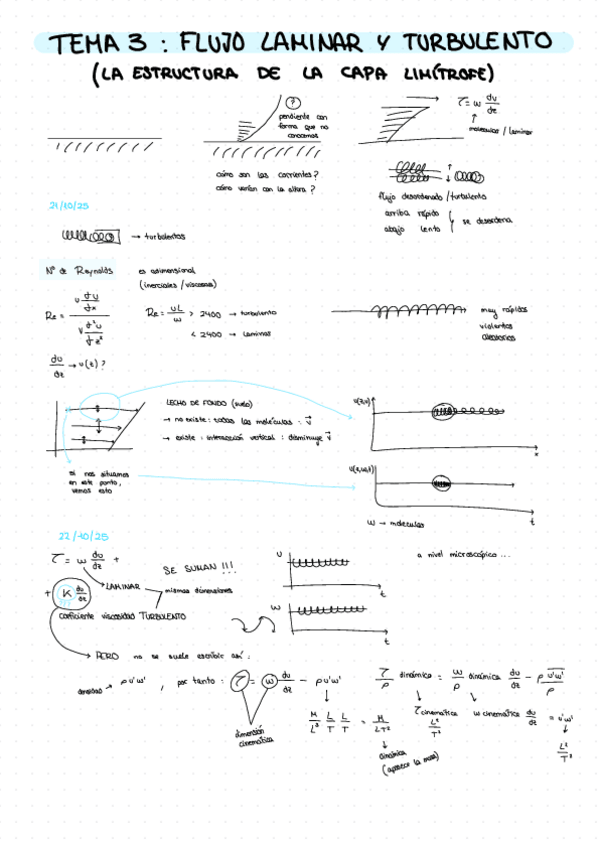 TEMA 3 : FLUJO LAMINAR Y TURBULENTO
(LA ESTRUCTURA DE LA CAPA LIMÍTROFE)
?
pendiente con
forma que no
conocemos
cómo son las corrientes?
cómo varían con la altura?
τ = ω du/dz
molecular / laminar
flujo desordenado / turbulento
arriba rápido
abajo lento
se desordena
21/10/25
→ turbulentos
Nº de Reynolds
es adimensional
(inerciales / viscosas)
Re =
Re = uL/ω > 2400 → turbulento
< 2400 → laminar
muy rápidos
violentos
aleatorios
du/dz → u(t)?
LECHO DE FONDO (suelo)
→ no existe : todas las moléculas : v
→ existe : interacción vertical : disminuye v
si nos situamos
en este punto,
vemos esto
x
t
ω → moléculas
22/10/25
τ = ω du/dz +
+ K du/dz
LAMINAR
SE SUMAN !!!
mismas dimensiones
coeficiente viscosidad TURBULENTO
U
t
ω
t
a nivel microscópico ...
PERO no se suele escribir así :
densidad → ρ u'ω' , por tanto : τ = ω du/dz - ρ u'ω'
dimensión
cinemática
M/L³ L/T L/T = M/LT²
dinámica
(aparece la masa)
τ/ρ dinámica = ω/ρ dinámica du/dz - ρ u'ω'/ρ
τ cinemática ω cinemática du/dz = u'ω'
L²/T²
L²/T²